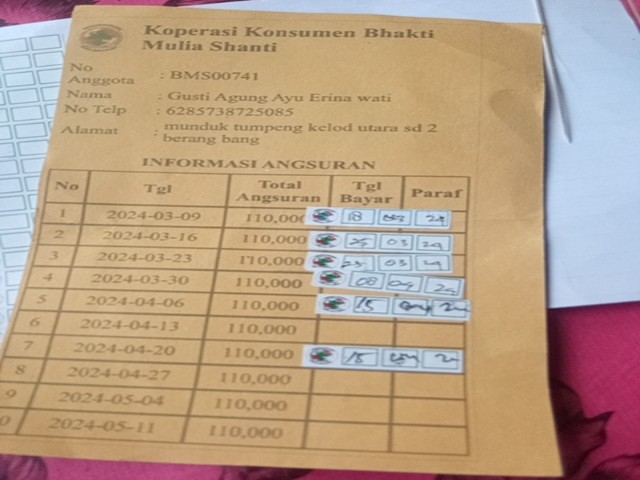 Koperasi Konsumen Bhakti
Mulia Shanti
No
Anggota : BMS00741
Nama : Gusti Agung Ayu Erina wati
No Telp : 6285738725085
Alamat : munduk tumpeng kelod utara sd 2
berang bang
INFORMASI ANGSURAN
No Tgl Total Angsuran Tgl Bayar Paraf
1 2024-03-09 110,000 18 24
2 2024-03-16 110,000 25 03 24
3 2024-03-23 110,000 25 03 24
4 2024-03-30 110,000 08 04 24
5 2024-04-06 110,000 15
6 2024-04-13 110,000
7 2024-04-20 110,000 15
8 2024-04-27 110,000
9 2024-05-04 110,000
0 2024-05-11 110,000